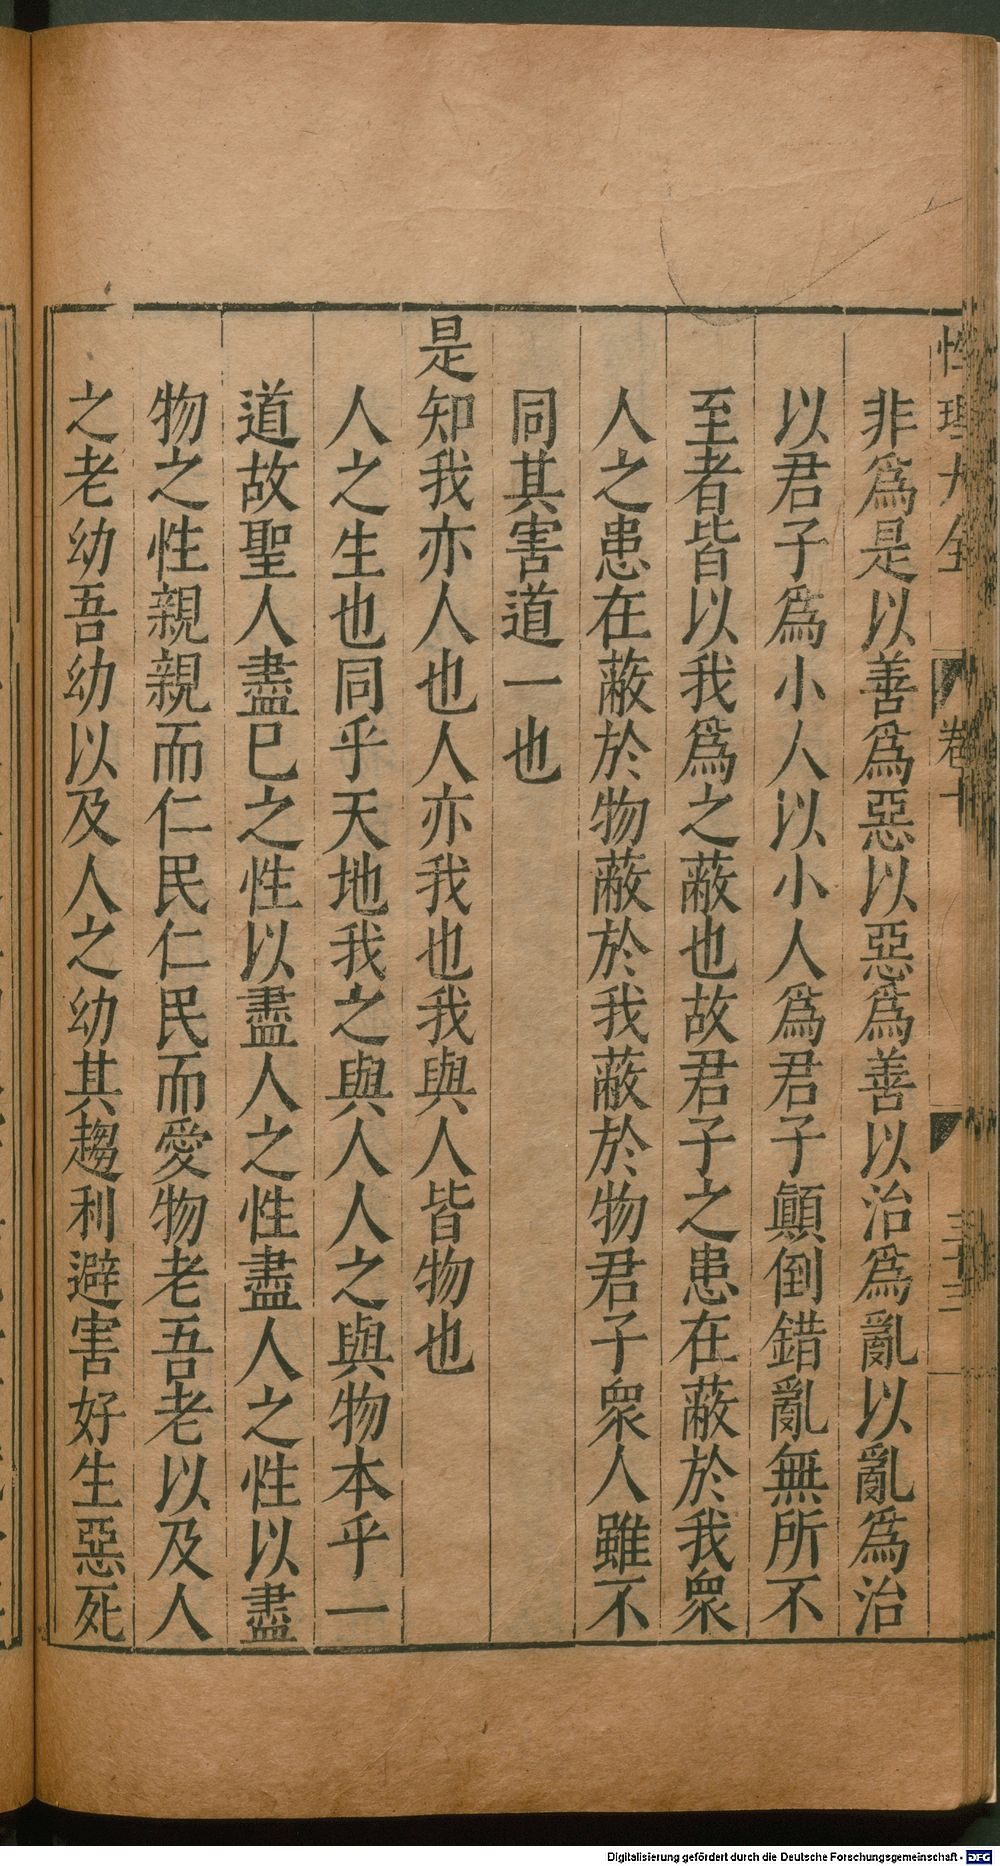 性理大全 卷十 三十三
非爲是以善爲惡以惡爲善以治爲亂以亂爲治
以君子爲小人以小人爲君子顛倒錯亂無所不
至者皆以我爲之蔽也故君子之患在蔽於我衆
人之患在蔽於物蔽於我蔽於物君子衆人雖不
同其害道一也
是知我亦人也人亦我也我與人皆物也
人之生也同乎天地我之與人人之與物本乎一
道故聖人盡已之性以盡人之性盡人之性以盡
物之性親親而仁民仁民而愛物老吾老以及人
之老幼吾幼以及人之幼其趨利避害好生惡死
Digitalisierung gefördert durch die Deutsche Forschungsgemeinschaft - DFG